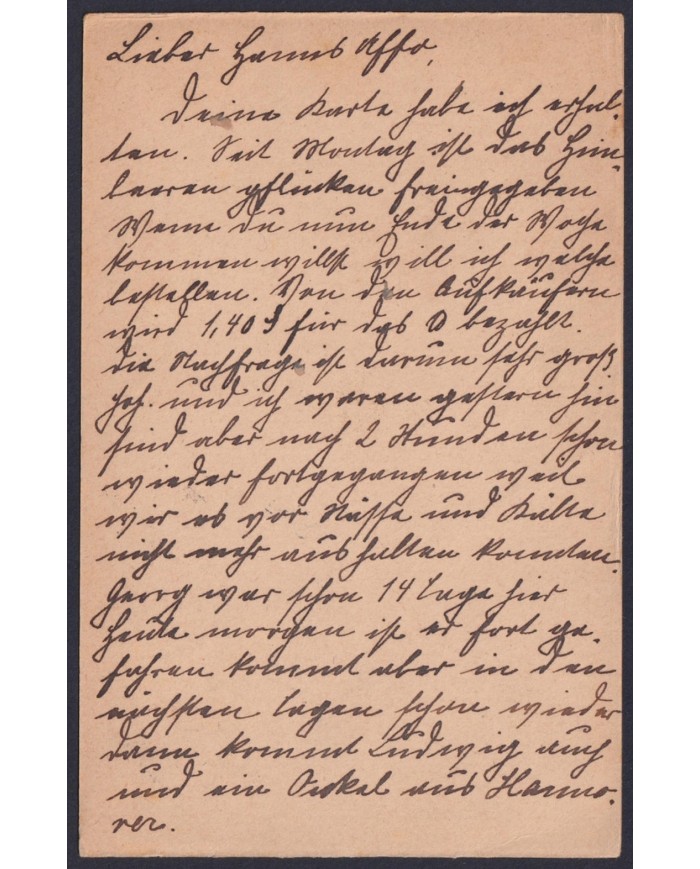 Lieber Hanns Affo,
Deine Karte habe ich erhal-
ten. Seit Montag ist das Him-
beeren pflücken freigegeben
Wenn du nun Ende der Woche
kommen willst will ich welche
bestellen. Von den Aufkäufern
wird 1,40 für das bezahlt.
die Nachfrage ist darum sehr groß
Joh. und ich waren gestern hin
sind aber nach 2 Stunden schon
wieder fortgegangen weil
wir es vor Nässe und Kälte
nicht mehr aushalten konnten.
Georg war schon 14 Tage hier
Heute morgen ist er fort ge-
fahren kommt aber in den
nächsten Tagen schon wieder
dann kommt Ludwig auch
und ein Onkel aus Hanno-
ver.